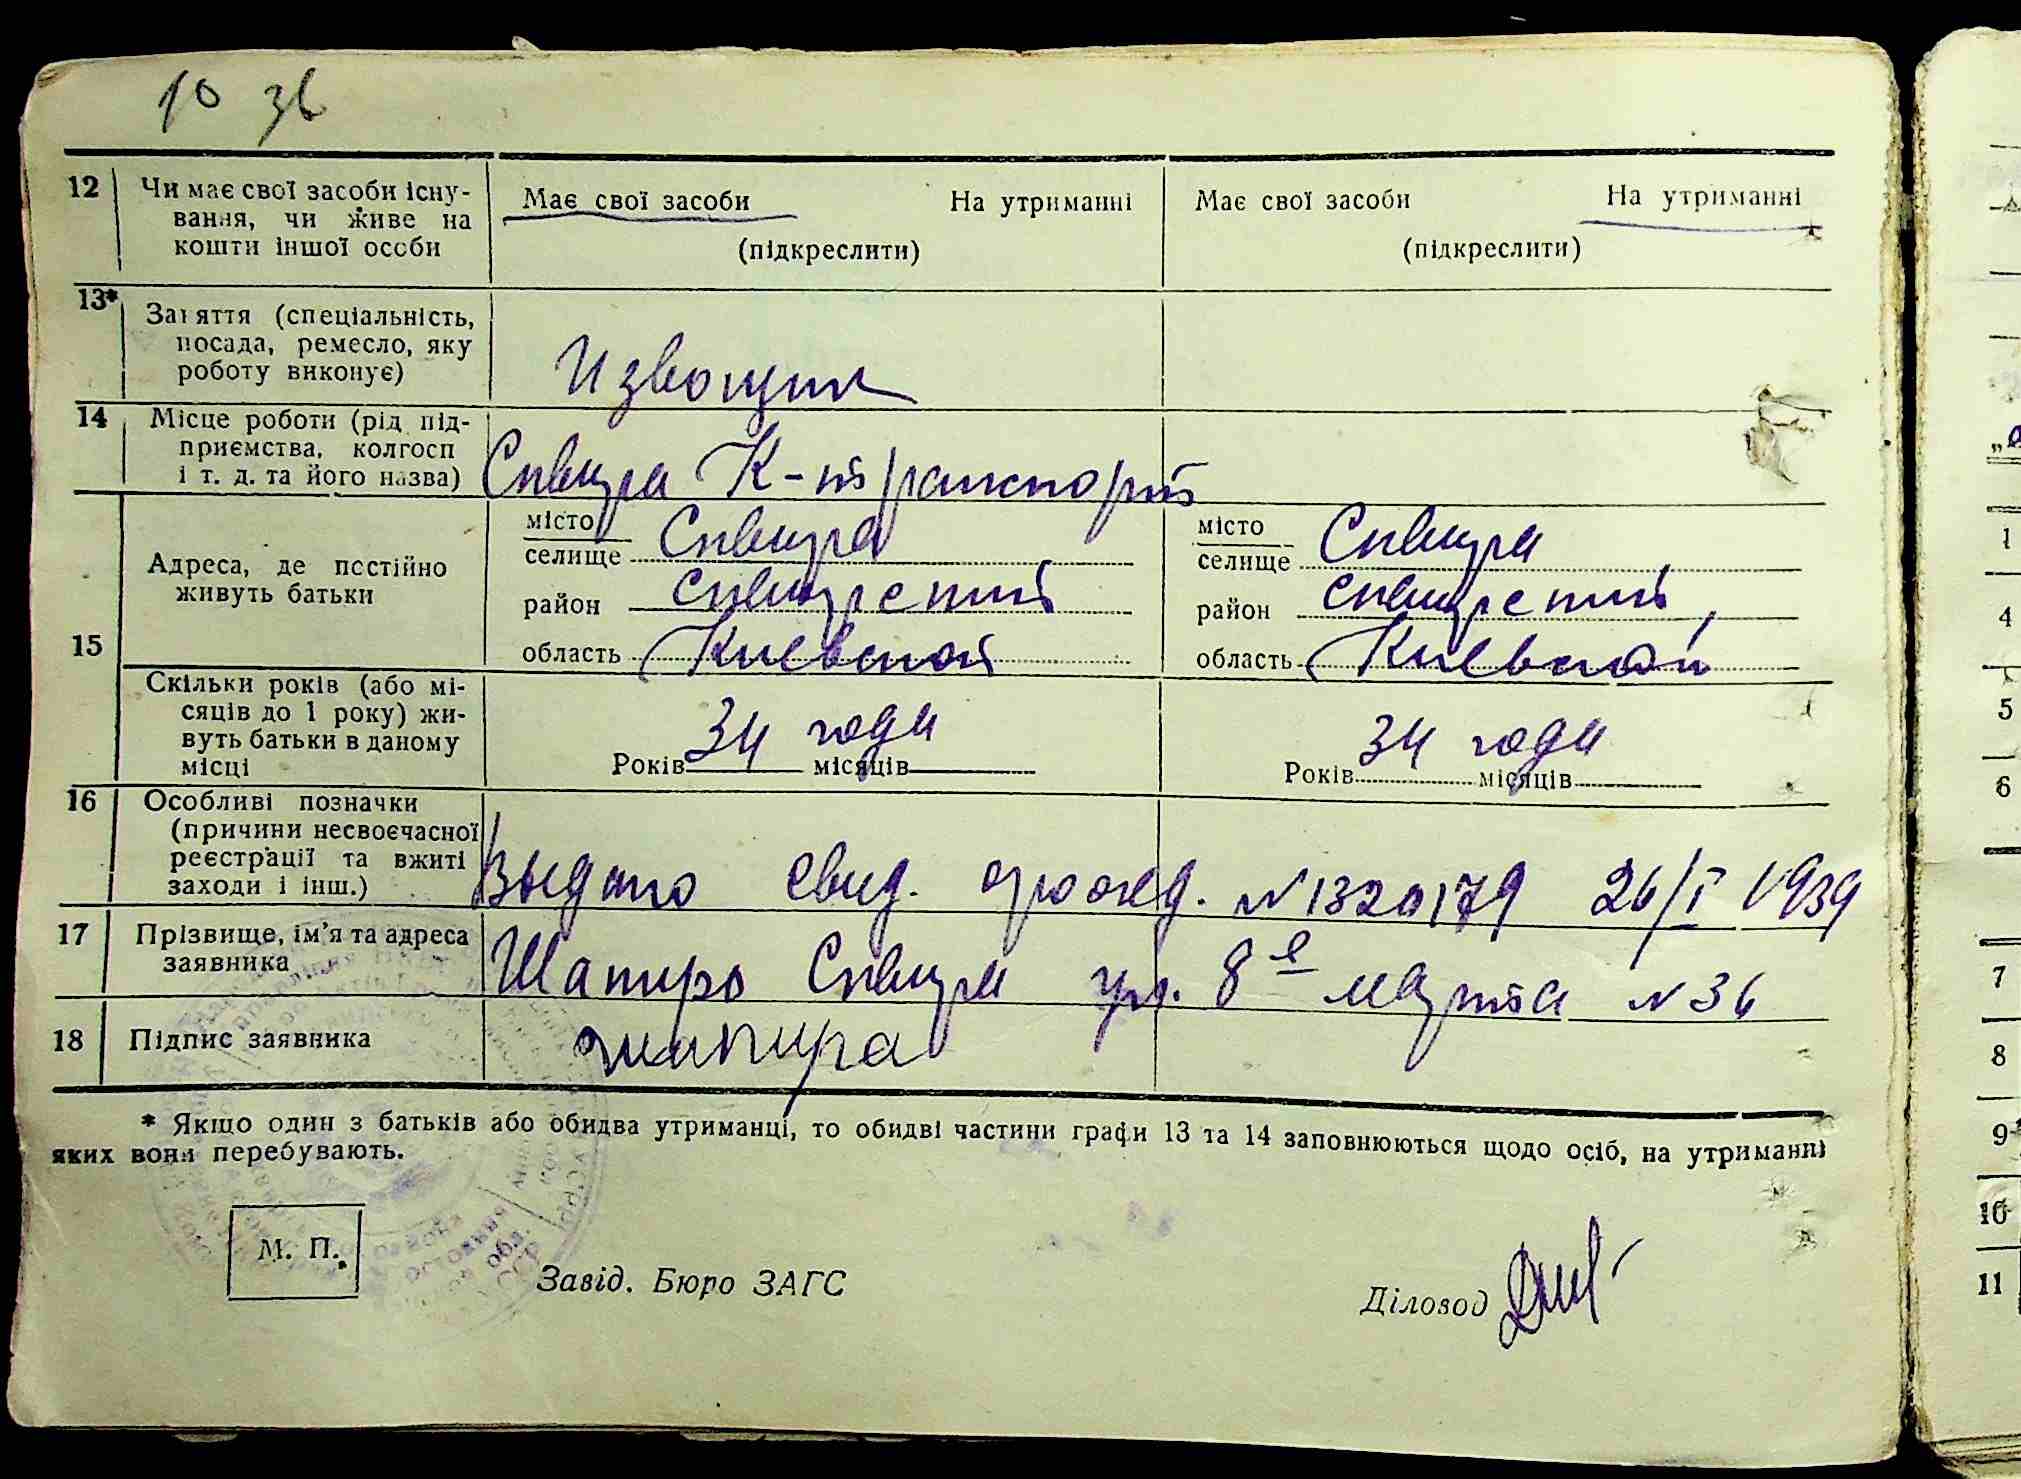 10 зв
12 Чи має свої засоби існу-
вання, чи живе на
кошти іншої особи
Має свої засоби На утриманні
(підкреслити)
Має свої засоби На утриманні
(підкреслити)
13* Заняття (спеціальність,
посада, ремесло, яку
роботу виконує)
Извощик
14 Місце роботи (рід під-
приємства, колгосп
і т. д. та його назва)
Сквира К-транспорт
15 Адреса, де постійно
живуть батьки
місто
селище Сквира
район Сквирский
область Киевской
місто
селище Сквира
район Сквирский
область Киевской
Скільки років (або мі-
сяців до 1 року) жи-
вуть батьки в даному
місці
34 года
Років місяців
34 года
Років місяців
16 Особливі позначки
(причини несвоєчасної
реєстрації та вжиті
заходи і інш.)
Выдано свид. о рожд. № 1320179 26/I 1939
17 Прізвище, ім'я та адреса
заявника
Шапиро Сквира ул. 8е марта № 36
18 Підпис заявника
Шапира
* Якщо один з батьків або обидва утриманці, то обидві частини графи 13 та 14 заповнюються щодо осіб, на утриманні
яких вони перебувають.
М. П.
Завід. Бюро ЗАГС
Діловод
1
4
5
6
7
8
9*
10
11